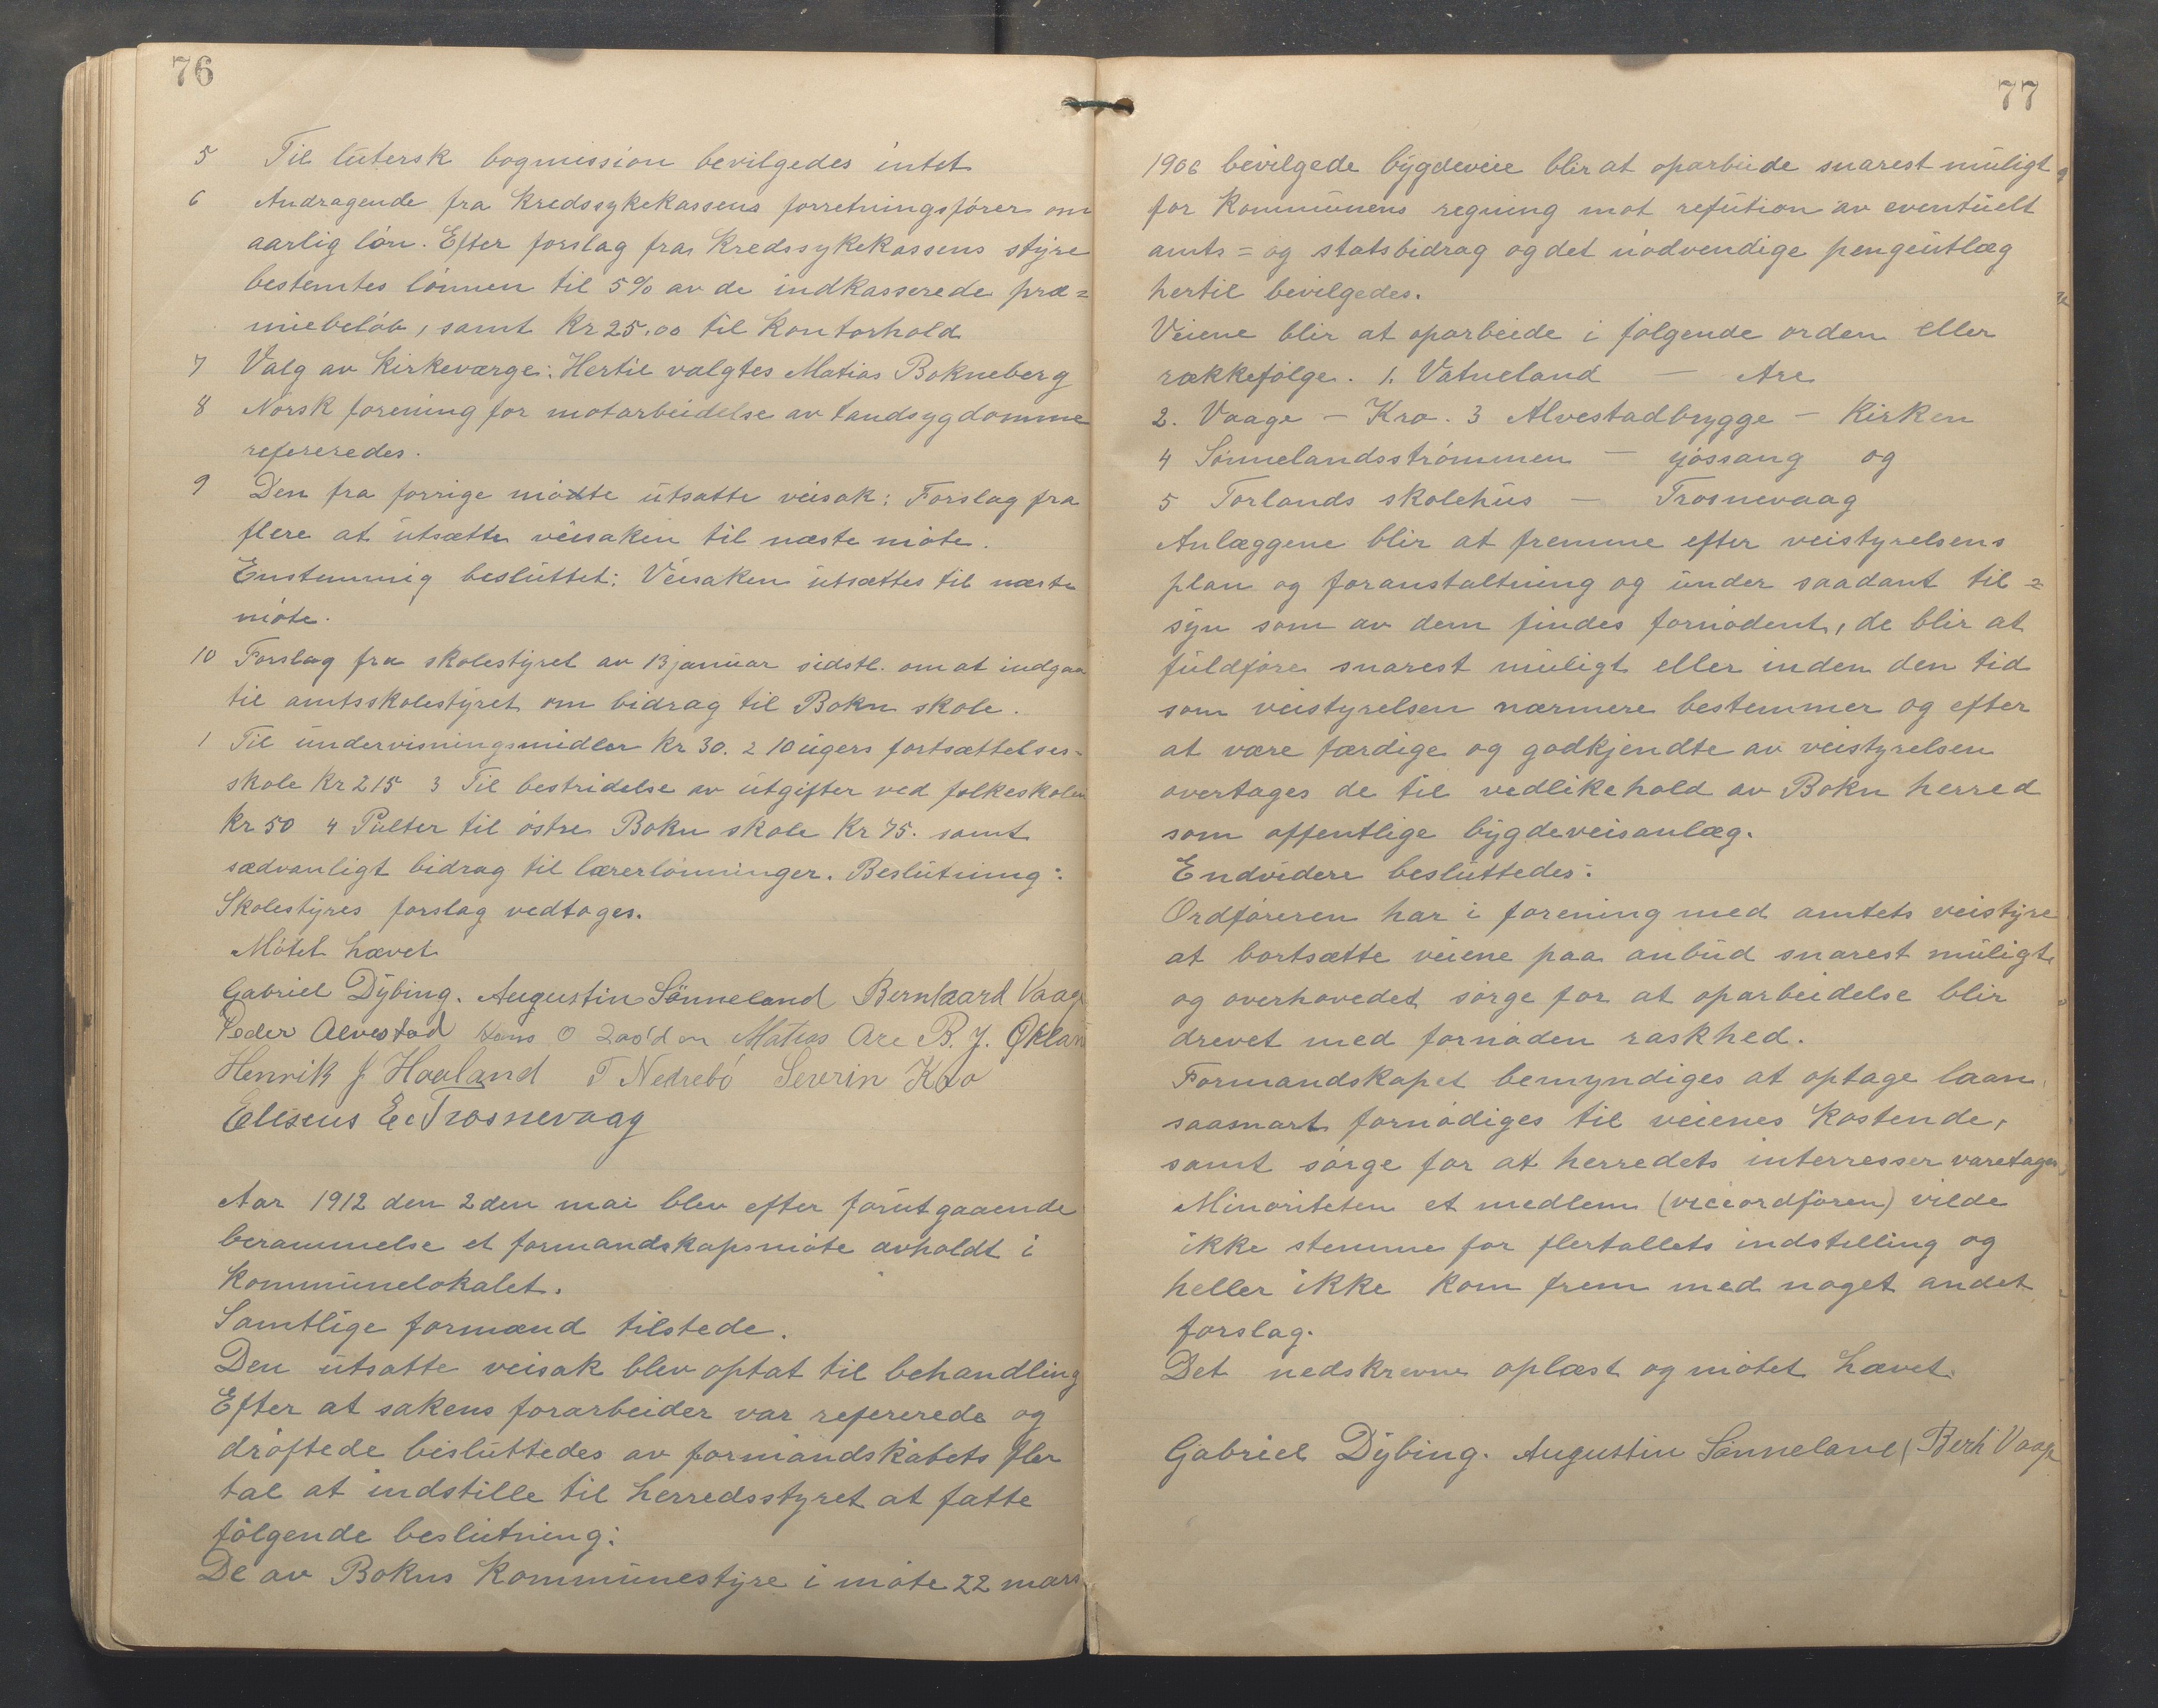 76
5 Til lutersk bogmission bevilgedes intet
6 Andragende fra Kredssykekassens forretningsfører om
aarlig løn. Efter forslag fra Kredssykekassens styre
bestemtes lønnen til 5% av de indkasserede præ=
miebeløb, samt Kr 25.00 til Kontorhold
7 Valg av Kirkeværge: Hertil valgtes Matias Bokneberg
8 Norsk forening for motarbeidelse av tandsygdomme
refereredes.
9 Den fra forrige mødte utsatte veisak: Forslag fra
flere at utsætte veisaken til næste møte.
Enstemmig besluttet: Veisaken utsættes til næste
møte.
10 Forslag fra skolestyret av 13 januar sidstl. om at indgaa
til amtsskolestyret om bidrag til Bokn skole.
1 Til undervisningsmidler Kr 30. 2 10 ugers fortsættelses=
skole Kr 215 3 Til bestridelse av utgifter ved folkeskolen
Kr 50 4 Pulter til østre Bokn skole Kr 75. samt
sædvanligt bidrag til lærerlønninger. Beslutning:
Skolestyres forslag vedtoges.
Møtet hævet
Gabriel Dybing. Augustin Sønneland Bernhaard Vaage
Peder Alvestad Hans O Matias Are B. J. Øklan
Henrik J Haaland T Nedrebø Severin Kro
Eliseus E. Trosnevaag
Aar 1912 den 2den mai blev efter forutgaaende
berammelse et formandskapsmøte avholdt i
Kommunelokalet.
Samtlige formænd tilstede.
Den utsatte veisak blev optat til behandling
Efter at sakens forarbeider var refererede og
drøftede besluttedes av formandskabets fler
tal at indstille til herredsstyret at fatte
følgende beslutning:
De av Bokns Kommunestyre i møte 22 mars
77
1906 bevilgede bygdeveie blir at oparbeide snarest muligt
for Kommunens regning mot refution av eventuelt
amts= og statsbidrag og det nødvendige pengeutlæg
hertil bevilgedes.
Veiene blir at oparbeide i følgende orden eller
rækkefølge. 1. Vatneland — Are
2. Vaage — Kro. 3 Alvestadbrygge — Kirken
4 Sønnelandsstrømmen — Gjøssang og
5 Torlands skolehus — Trosnevaag
Anlæggene blir at fremme efter veistyrelsens
plan og foranstaltning og under saadant til=
syn som av dem findes fornødent, de blir at
fuldføre snarest muligt eller inden den tid
som veistyrelsen nærmere bestemmer og efter
at være færdige og godkjendte av veistyrelsen
overtages de til vedlikehold av Bokn herred
som offentlige bygdeveisanlæg.
Endvidere besluttedes:
Ordføreren har i forening med amtets veistyre
at bortsætte veiene paa anbud snarest muligt
og overhovedet sørge for at oparbeidelse blir
drevet med fornøden raskhed.
Formandskapet bemyndiges at optage laan
saasnart fornødiges til veienes Kostende,
samt sørge for at herredets interresser varetages
Minoriteten et medlem (viceordføren) vilde
ikke stemme for flertallets indstilling og
heller ikke kom frem med noget andet
forslag.
Det nedskrevne oplæst og møtet hævet.
Gabriel Dybing. Augustin Sønneland Berh Vaage